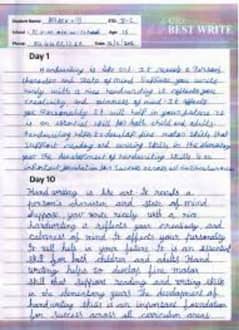 Student Name:
BEST WRITE
School: Age:
Phone: Date:
Day 1
Handwriting is like art. It reveals a Person's
character and state of mind Suppose you write
nicely with a nice handwriting it reflects your
creativity and calmness of mind. It affects
your Personality. It will help in your future. It
is an essential skill for both child and adults
handwriting helps to develop fine motor skills that
support reading and writing skills in the elementary
years the development of handwriting skills is an
important foundation for success across all
Day 10
Hand writing is like art It reveals a
person's character and state of mind
suppose, you write nicely with a nice
handwriting it reflects your creativity and
calmness of mind. It affects your personality
It will help in your future It is an essential
skill for both children and adults Hand
writing helps to develop fine motor
skill that support reading and writing skills
in the elementary years The development of
handwriting skills is an important foundation
for success across all curriculum areas